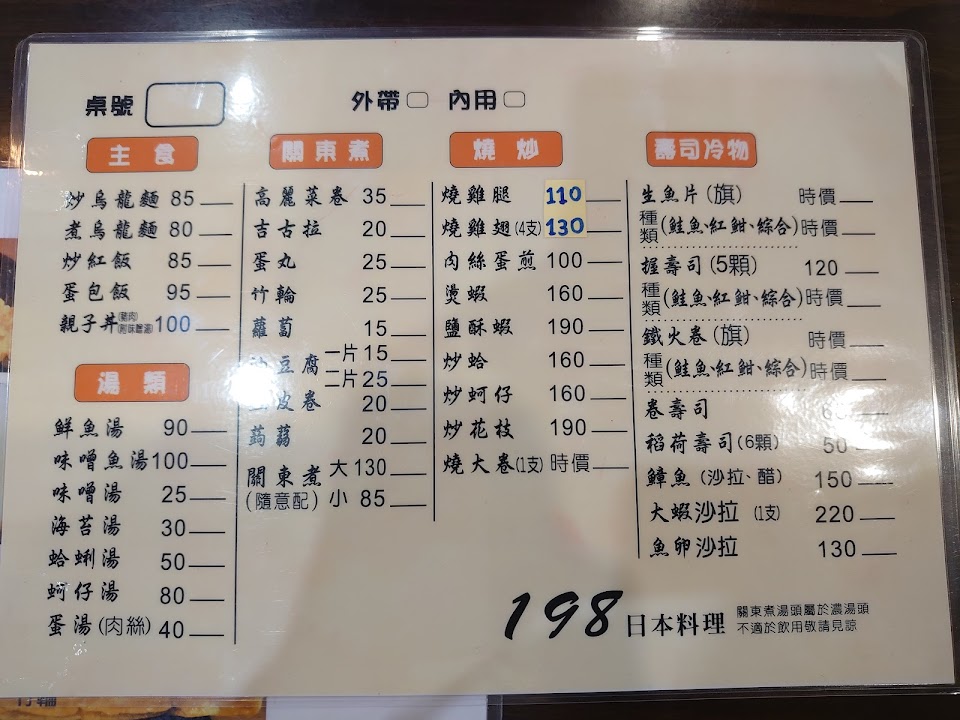 桌號 外帶 內用
主食
炒烏龍麵 85
煮烏龍麵 80
炒紅飯 85
蛋包飯 95
親子丼(雞肉) 100
湯類
鮮魚湯 90
味噌魚湯 100
味噌湯 25
海苔湯 30
蛤蜊湯 50
蚵仔湯 80
蛋湯(肉絲) 40
關東煮
高麗菜卷 35
吉古拉 20
蛋丸 25
竹輪 25
蘿蔔 15
豆腐 一片 15
二片 25
皮卷 20
蒟蒻 20
關東煮 大 130
(隨意配) 小 85
燒炒
燒雞腿 110
燒雞翅(4支) 130
肉絲蛋煎 100
燙蝦 160
鹽酥蝦 190
炒蛤 160
炒蚵仔 160
炒花枝 190
燒大卷(1支) 時價
壽司冷物
生魚片(旗) 時價
種類(鮭魚、紅魽、綜合) 時價
握壽司(5顆) 120
種類(鮭魚、紅魽、綜合) 時價
鐵火卷(旗) 時價
種類(鮭魚、紅魽、綜合) 時價
卷壽司
稻荷壽司(6顆) 50
鱆魚(沙拉、醋) 150
大蝦沙拉(1支) 220
魚卵沙拉 130
198 日本料理
關東煮湯頭屬於濃湯頭
不適於飲用敬請見諒
竹輪